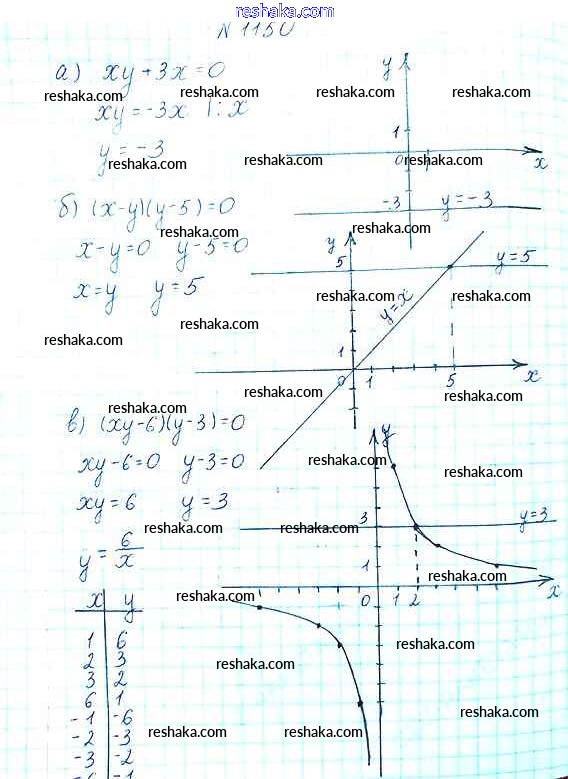 reshaka.com
N 1150
а) xy + 3x = 0
xy = -3x |: x
y = -3
y
1
0
x
-3
y = -3
б) (x-y)(y-5) = 0
x-y=0 y-5=0
x=y y=5
y
5
y=5
y=x
1
0 1 5 x
в) (xy-6)(y-3)=0
xy-6=0 y-3=0
xy=6 y=3
y = 6/x
y
3
y=3
1
0 1 2 x
x y
1 6
2 3
3 2
6 1
-1 -6
-2 -3
-3 -2
-6 -1
reshaka.com reshaka.com reshaka.com reshaka.com
reshaka.com reshaka.com reshaka.com
reshaka.com reshaka.com
reshaka.com reshaka.com
reshaka.com reshaka.com
reshaka.com reshaka.com
reshaka.com
reshaka.com reshaka.com
reshaka.com reshaka.com
reshaka.com
reshaka.com
reshaka.com
reshaka.com
reshaka.com
reshaka.com
reshaka.com reshaka.com